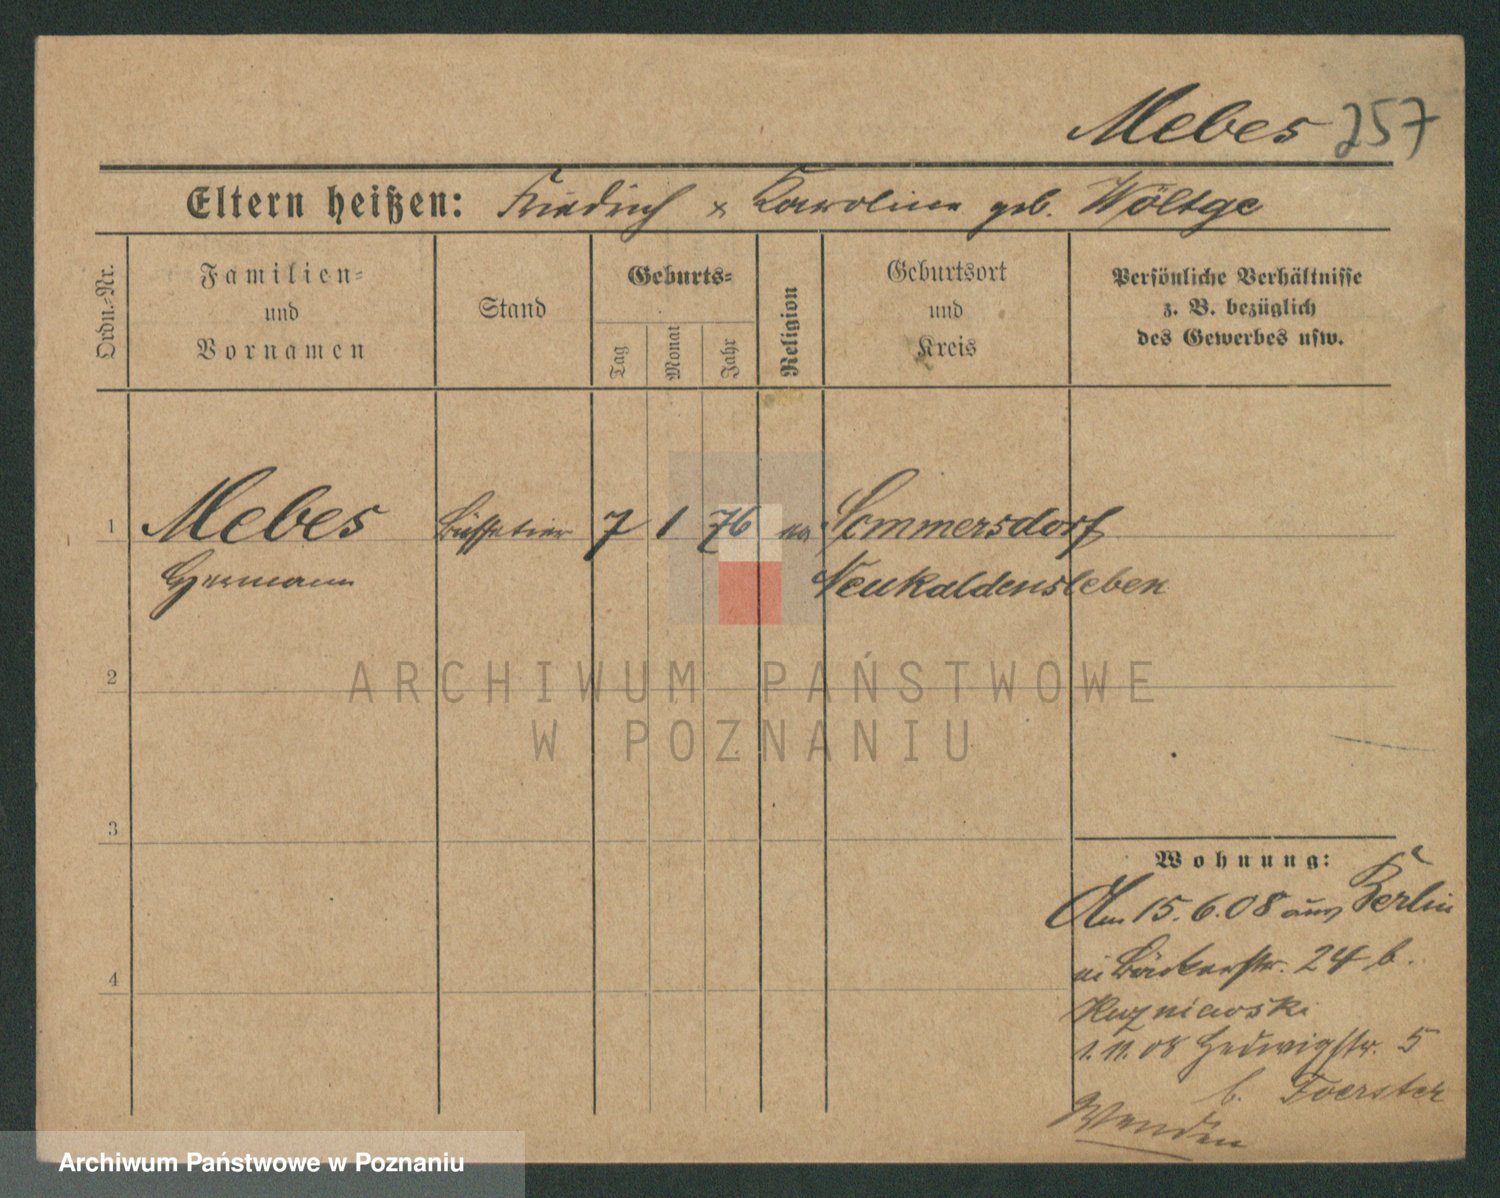 Mebes 257
Eltern heißen: Friedrich & Karoline geb. Wöltge
Ordn.-Nr.
Familien-
und
Vornamen
Stand
Geburts-
Tag
Monat
Jahr
Religion
Geburtsort
und
Kreis
Persönliche Verhältnisse
z. B. bezüglich
des Gewerbes usw.
1 Mebes Büffetier 7 1 76 ev Sommersdorf
Hermann Neuhaldensleben
2
ARCHIWUM PAŃSTWOWE
W POZNANIU
3
4
Wohnung:
Am 15.6.08 aus Berlin
Bäckerstr. 24 b.
Kuzniawski
1.11.08 Hedwigstr. 5
b. Foerster
Wenden
Archiwum Państwowe w Poznaniu